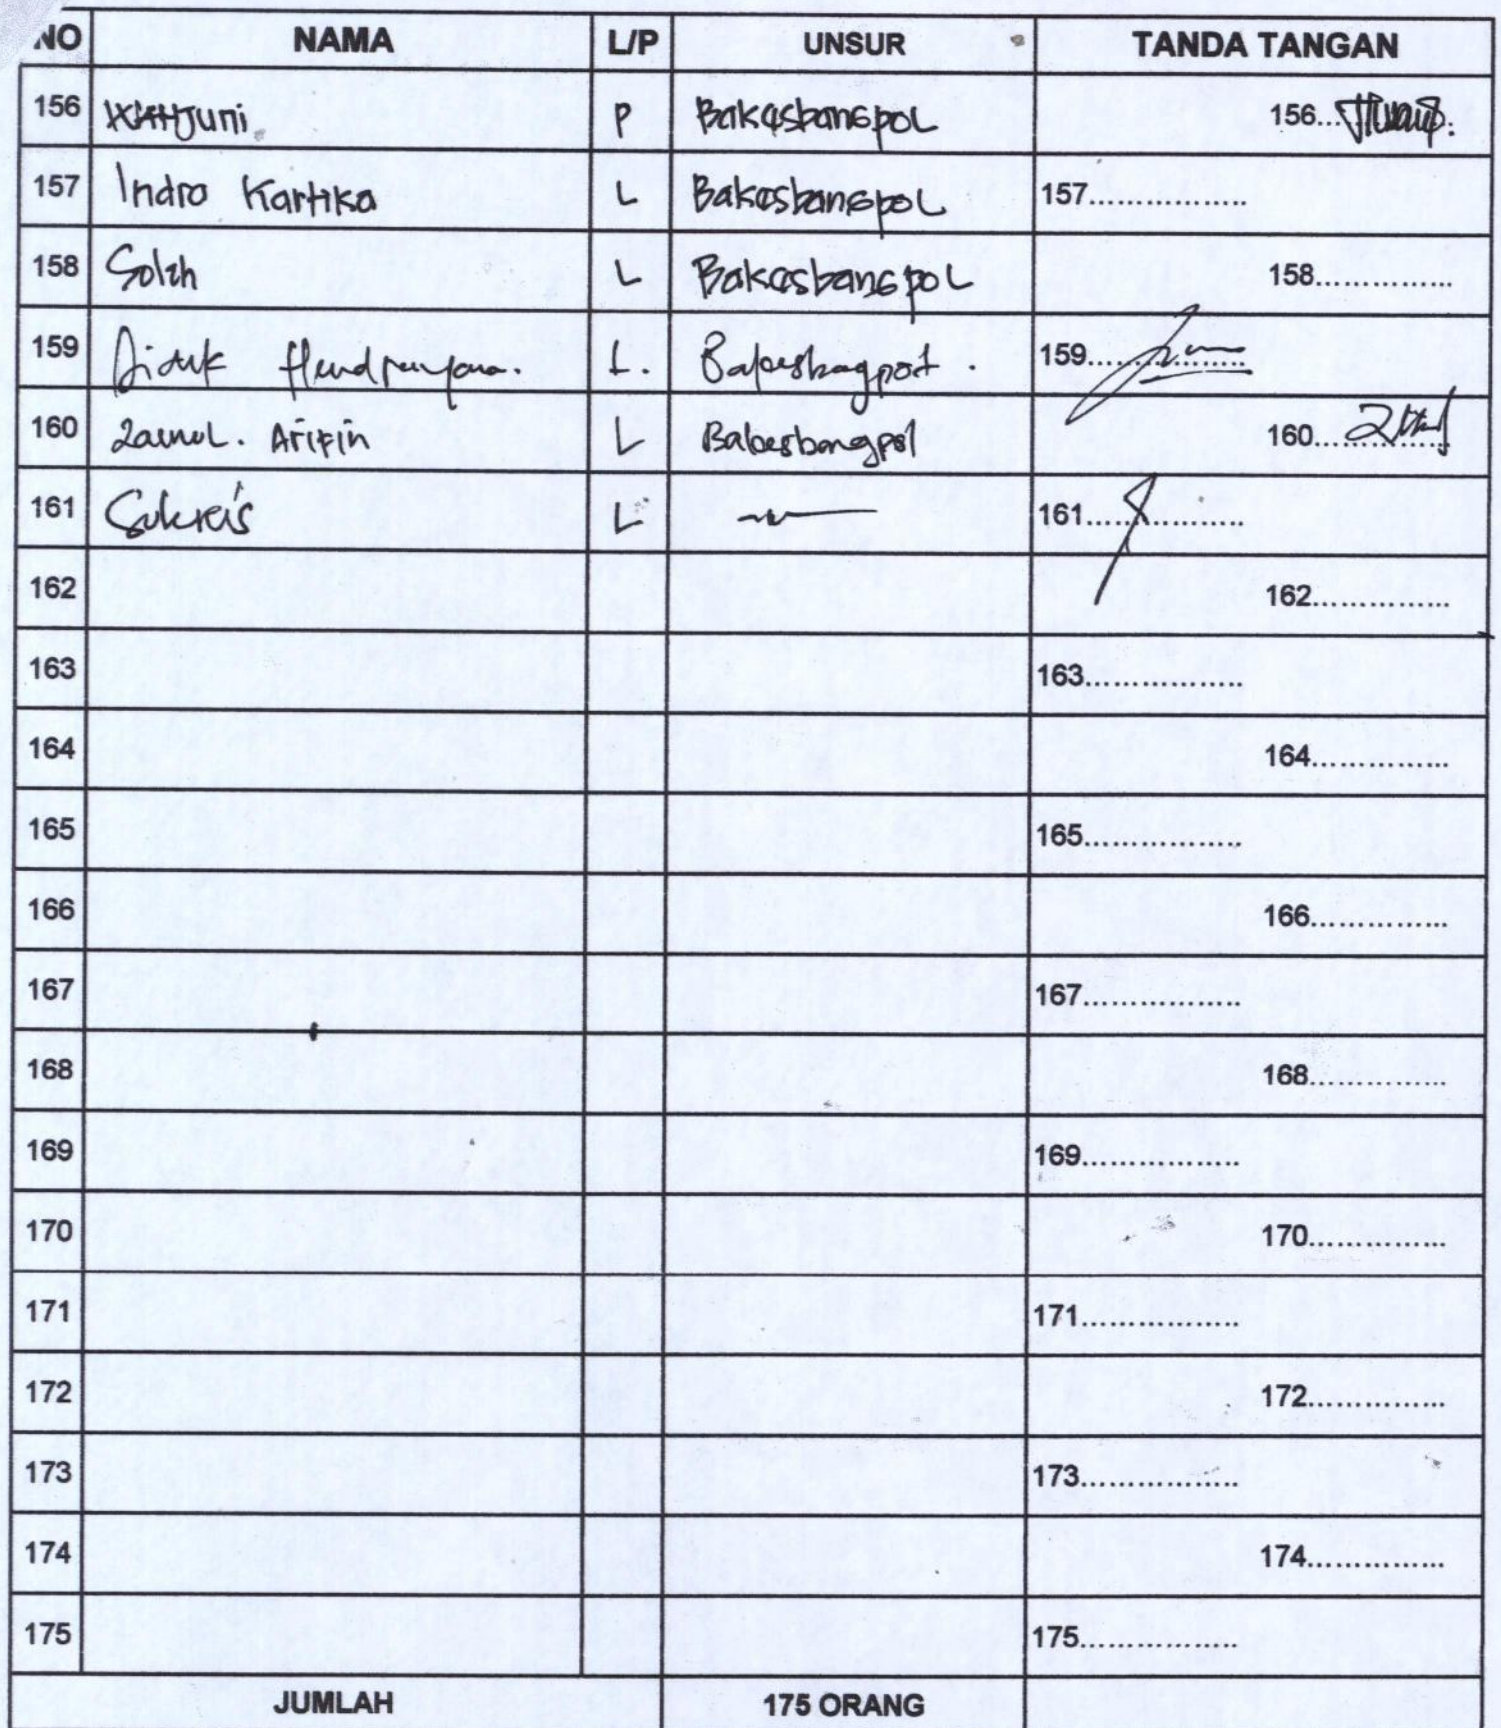 NO NAMA L/P UNSUR TANDA TANGAN
156 P Bakesbangpol 156...
157 Indra Kartika L Bakesbangpol 157................
158 Soleh L Bakesbangpol 158..............
159 L. Bakesbangpol. 159................
160 Zainul. Arifin L Bakesbangpol 160..............
161 L 161................
162 162..............
163 163................
164 164..............
165 165................
166 166..............
167 167................
168 168..............
169 169................
170 170..............
171 171................
172 172..............
173 173................
174 174..............
175 175................
JUMLAH 175 ORANG